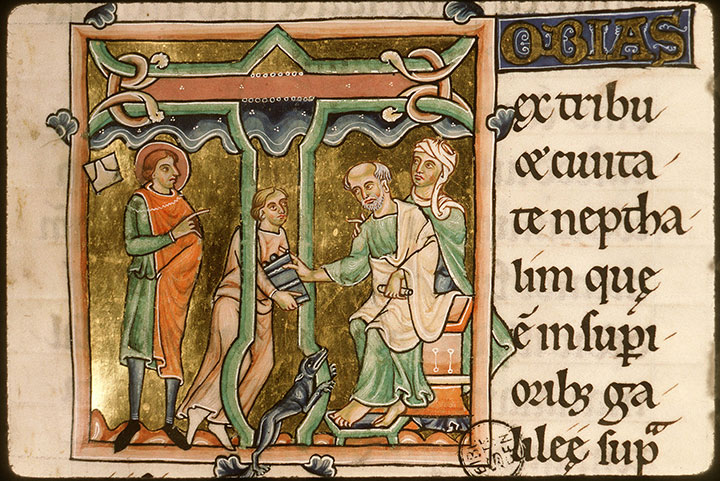 OBIAS
ex tribu
& ciuita
te neptha
lim quę
ē in supi
oribꝫ ga
lileę supᵃ